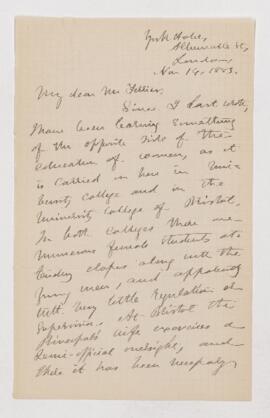 York Hotel,
Albemarle St,
London,
Nov 19. 1883.
My dear Mr
Since I last wrote,
I have been learning something
of the opposite side of the
education of women, as it
is carried on here in Uni-
versity College and in the
University College of Bristol.
In both colleges there are
numerous female students at-
tending classes along with the
young men, and apparently
with very little regulation or
supervision. At Bristol the
Principal's wife exercises a
semi-official oversight, and
there it has been